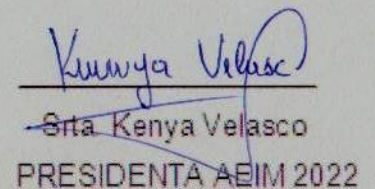 Kenya Velasc
Srta Kenya Velasco
PRESIDENTA AEIM 2022